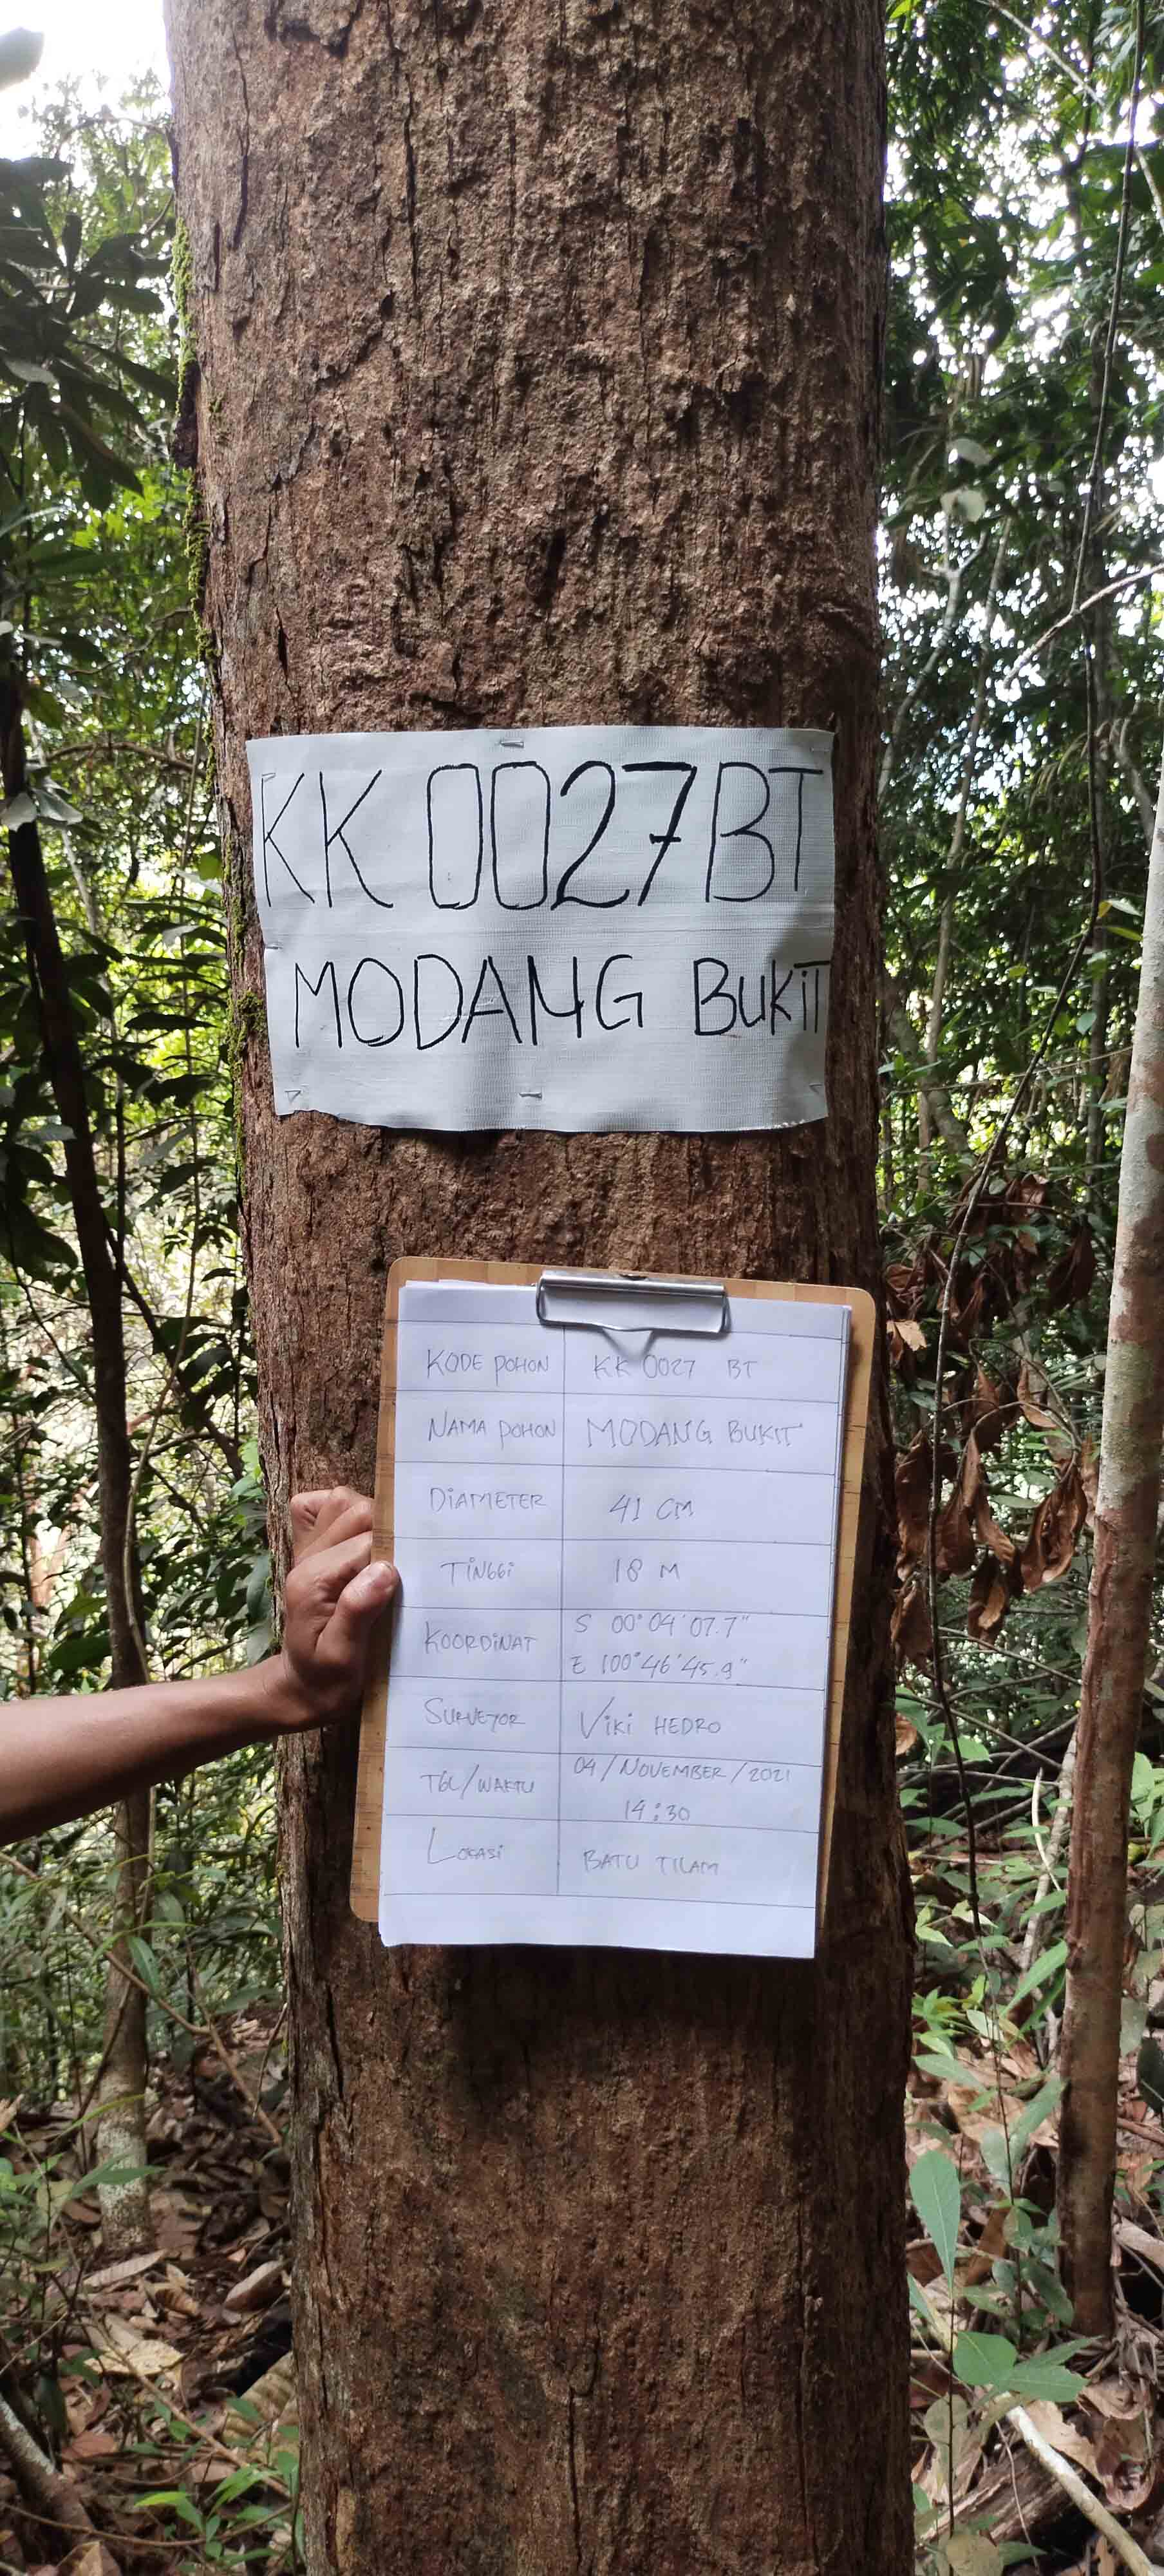 KK 0027 BT
MODANG BUKiT
KODE POHON KK 0027 BT
NAMA POHON MODANG BUKIT
DiAMETER 41 CM
TiNGGi 18 M
KOORDiNAT S 00° 04' 07.7"
E 100° 46' 45.9"
SURVEYOR Viki HEDRO
TGL/WAKTU 04/NOVEMBER/2021
14:30
LOKASi BATU TILAM